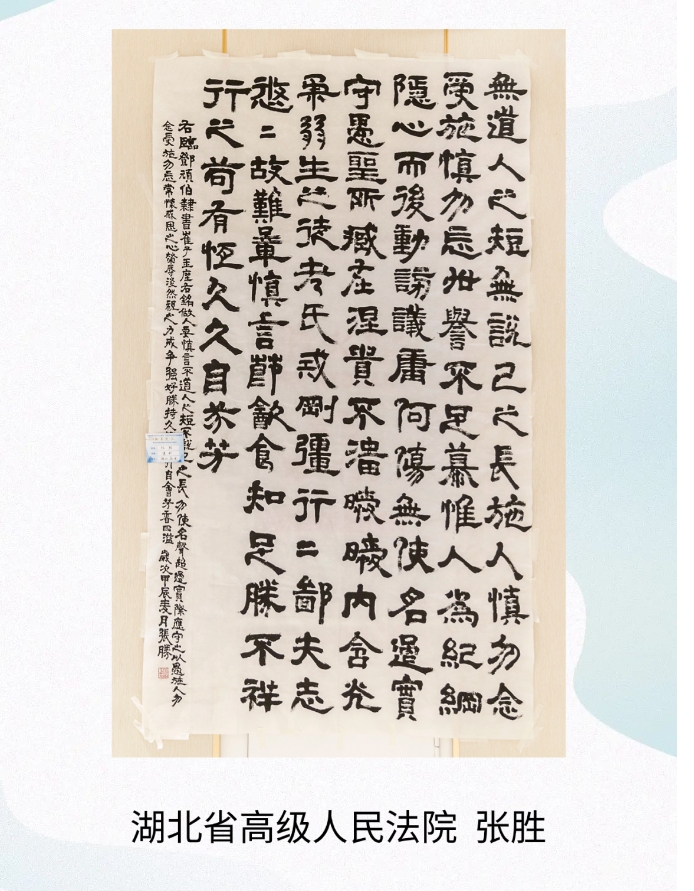 無道人之短無說己之長施人慎勿念
受施慎勿忘世譽不足慕惟人為紀綱
隱心而後動謗議庸何傷無使名過實
守愚聖所臧在涅貴不淄曖曖內含光
柔弱生之徒老氏戒剛彊行二鄙夫志
悠二故難量慎言節飲食知足勝不祥
行之苟有恆久久自芬芳
右臨鄧頑伯隸書崔子玉座右銘做人要慎言不道人之短不說己之長勿使名聲超過實際應守之以愚施人勿
念受施勿忘常懷感恩之心榮辱淡然視之力戒爭強好勝持久行自會芬香四溢 歲次甲辰月張勝
湖北省高级人民法院 张胜